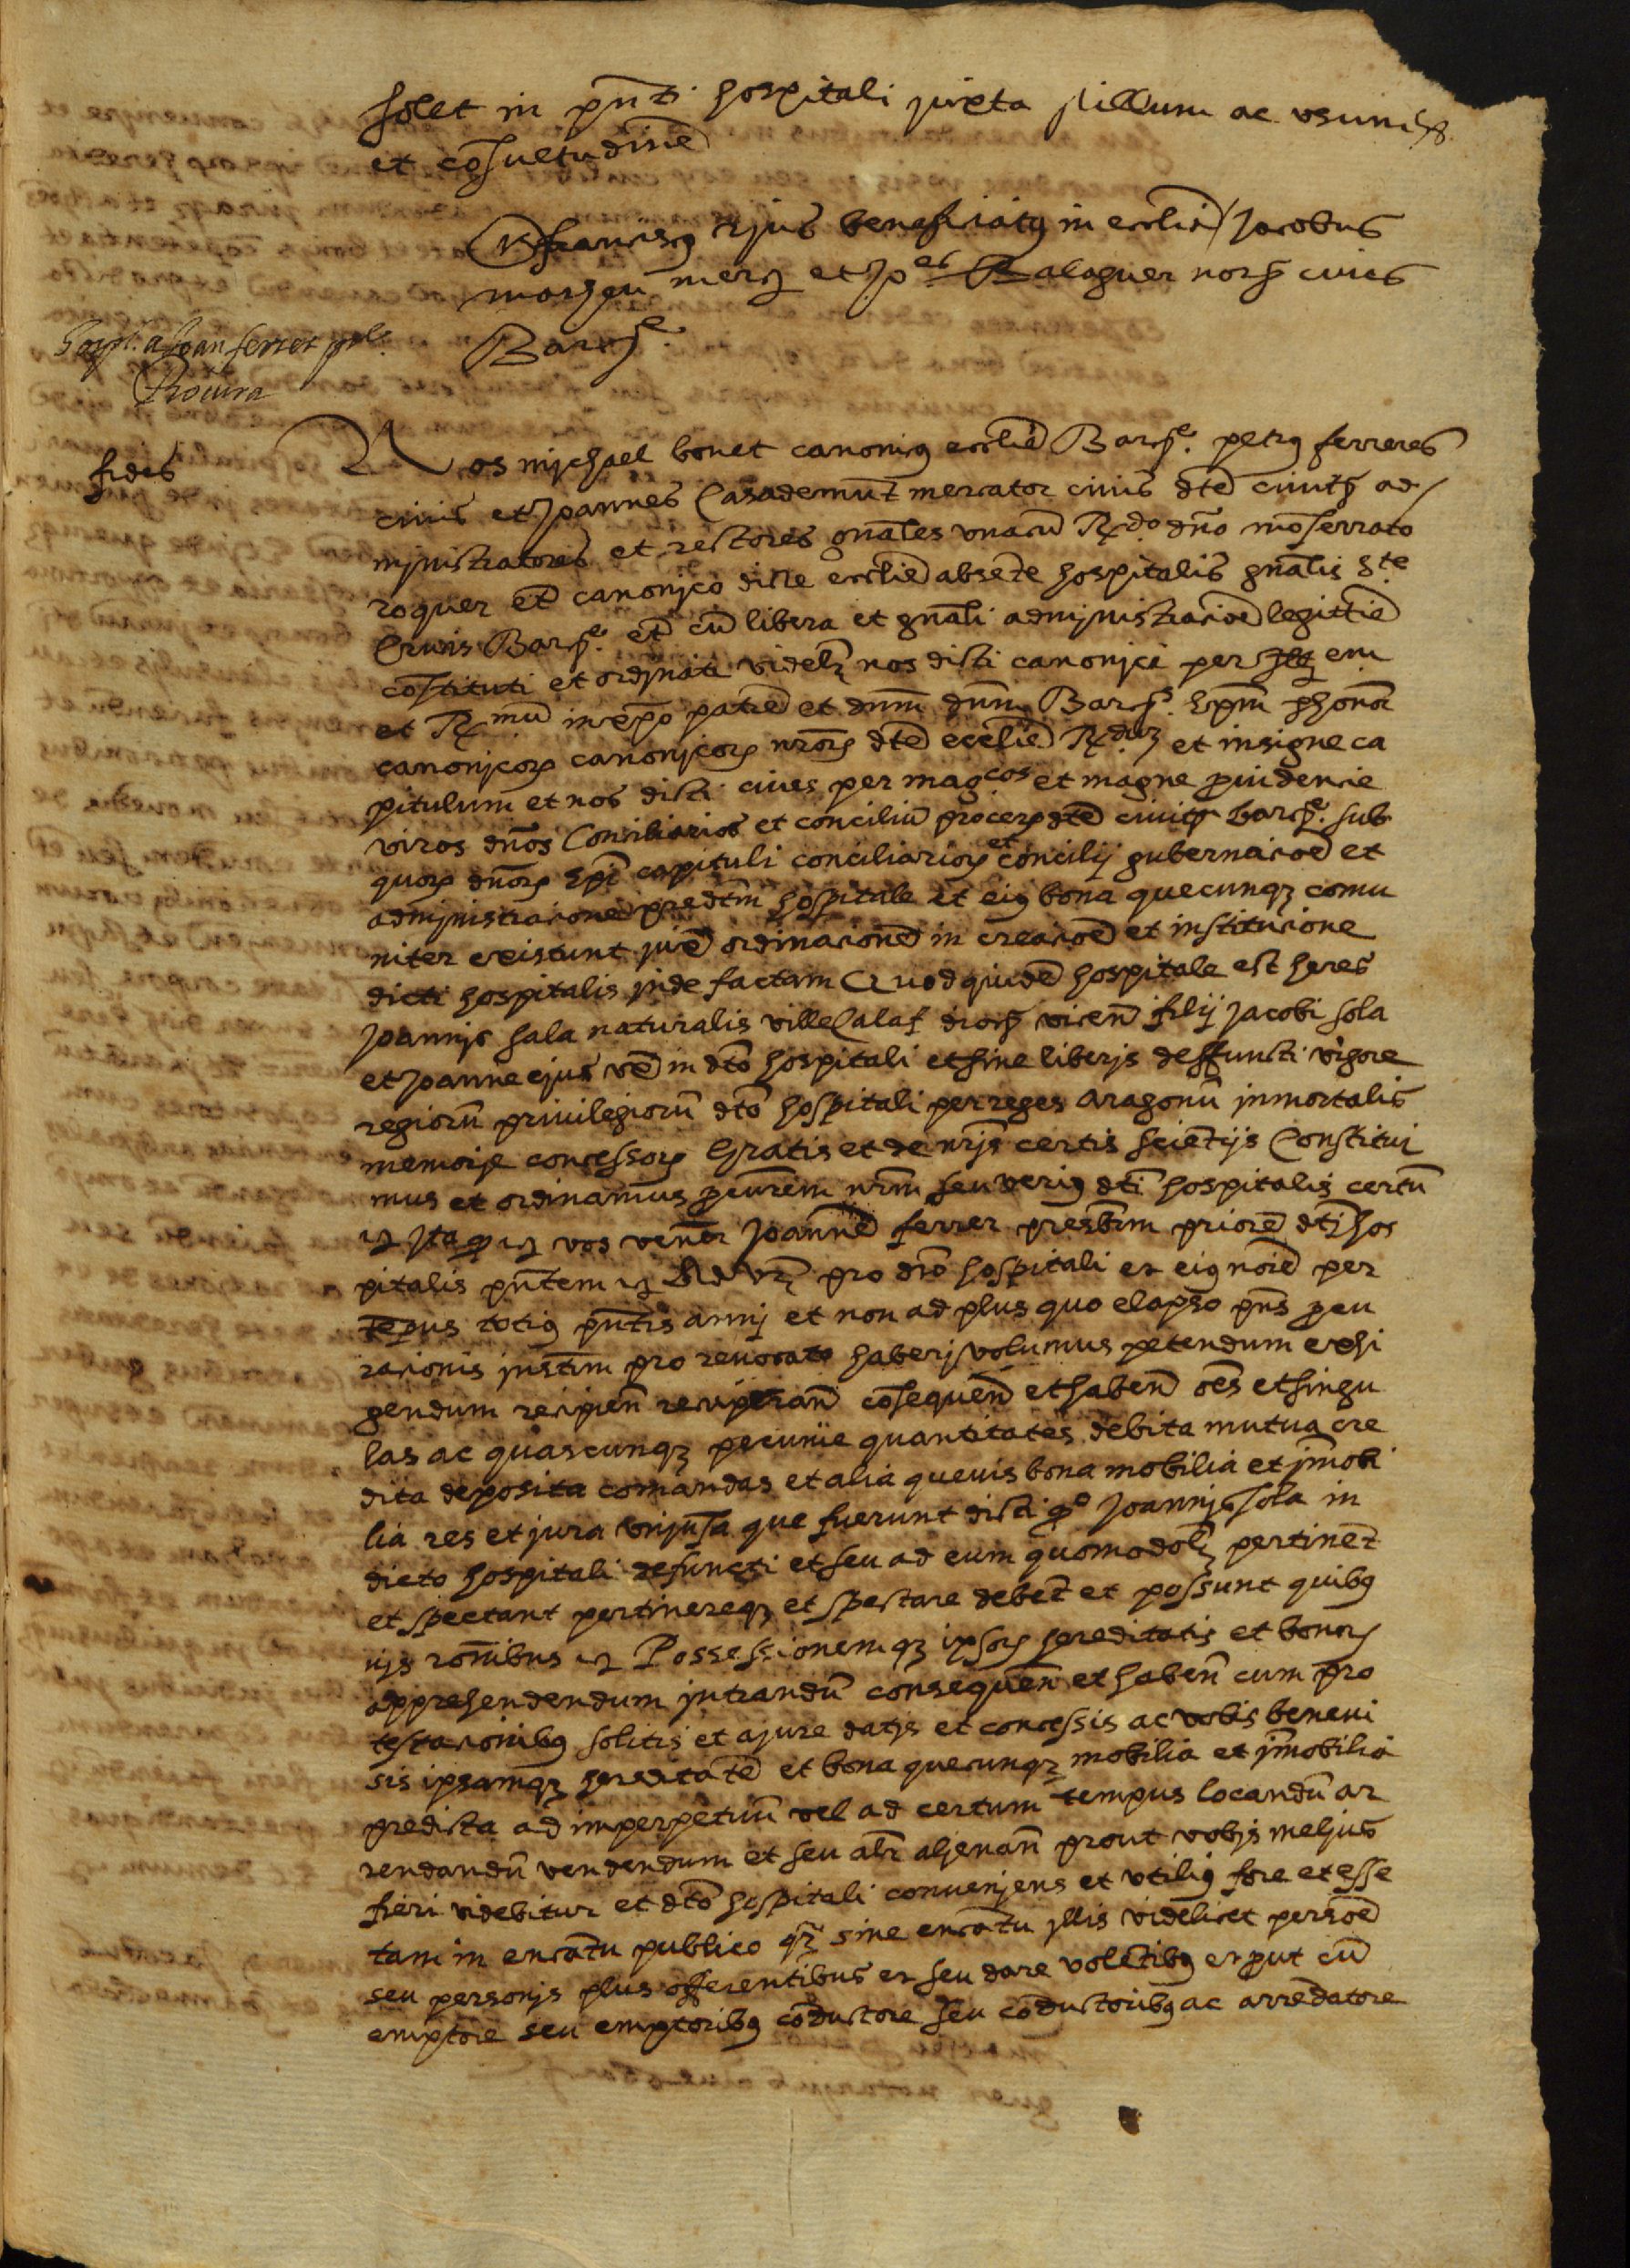 solet in pnti hospitali juxta stillum ac usum
et cōsuetudinē
franciscus Rius beneficiatus in ecclīa Jacobus
et Jo es Balaguer cives
Barçe
a Joan ferrer
Procura
fides
Nos mjchael bonet canonicus ecclīe Barçe. petrus ferreres
civis et Joannes Casademūt mercator civis dte civitis ad
mjnistratores et rectores gnāles unacū Rdo. dño mōserrato
roquer etiā canonjco dicte ecclīe absēte hospitalis gnālis Ste
Crucis Barçe etiā cū libera et gnāli admjnistraciōe legittīe
cōstituti et ordjnati videlz nos dicti canonjci per em
et Rmū in xpō patrē et dnm dnm Barçe. Epm
canonjcoꝝ canonjcoꝝ nroꝝ dte ecclīe Rdūz et insigne ca
pitulum et nos dicti cives per magcos et magne providencie
viros dños Consiliarios et conciliū proceꝝ dte civitis barçe. sub
quoꝝ dnoꝝ Epī capituli conciliarioꝝ et concilij gubernaciōe et
admjnistracione predtm hospitale et eius bona quecunqꝫ comu
niter existunt ordinacionē in creaciōe et institucione
dicti hospitalis inde factam Quodquidē hospitale est heres
Joannjs sala naturalis ville Calaf dioc. vicen̄ filij Jacobi sola
et Joanne ejus ux̄ in dto hospitali et sine liberjs deffuncti vigore
regiorū privilegiorū dto hospitali per reges Aragonū inmortalis
memorie concessoꝝ Gratis et de nrjs certis scientijs Constitui
mus et ordinamus procurem nrm seu verius dti hospitalis certū
ita qꝫ vos venēr Joannē ferrer presbrm priorē dtj hos
pitalis pntem Ad vidz pro dto hospitali et eius noīe per
tēpus totius pntis annj et non ad plus quo elapso pns procu
racionis instm pro revocato haberj volumus petendum exhi
gendum recipien̄ recuperan̄ cōsequen̄ et haben̄ oēs et singu
las ac quascunqꝫ pecunie quantitates debita mutua cre
dita deposita comandas et alia quevis bona mobilia et jmobi
lia res et jura unjversa que fuerunt dicti qo Joannjs sola in
dicto hospitali defuncti et seu ad eum quomodolz pertinēt
et spectant pertinereqꝫ et spectare debēt et possunt quibus
vjs rōnibus Possessionemqꝫ ipsoꝝ hereditatis et bonoꝝ
apprehendendum jntrandū consequen̄ et haben̄ cum pro
testacionibus solitis et a jure datjs et concessis ac vobis benevi
sis ipsamqꝫ hereditatē et bona quecunqꝫ mobilia et jmobilia
predicta ad imperpetuū vel ad certum tempus locandū ar
rendandū vendendum et seu alr aljenan̄ prout vobjs meljus
fieri videbitur et dto hospitali convenjens et utilius fore et esse
tam in encātu publico qꝫ sine encātu jllis videlicet persōe
seu personjs plus offerentibus et seu dare volētibus et put cū
emptore seu emptoribus cōductore seu cōductoribus ac arrēdatore